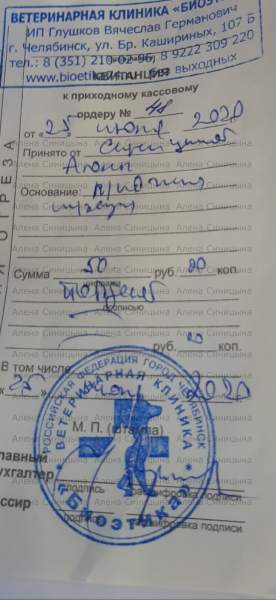 ВЕТЕРИНАРНАЯ КЛИНИКА «БИОЭТИКА»
ИП Глушков Вячеслав Германович
г. Челябинск, ул. Бр. Кашириных, 107 Б
тел.: 8 (351) 210-02-96, 8 9222 309 220
www.bioetik без выходных
КВИТАНЦИЯ
к приходному кассовому
ордеру № 48
от «25 июня 2020
Принято от Синициной
Алены
Основание:
Сумма 50 руб. 00 коп.
прописью
руб. 00 коп.
В том числе
«25» июня 2020
РОССИЙСКАЯ ФЕДЕРАЦИЯ ГОРОД ЧЕЛЯБИНСК
ВЕТЕРИНАРНАЯ КЛИНИКА
«Биоэтика»
М. П. (штампа)
главный
бухгалтер
подпись расшифровка подписи
кассир
подпись расшифровка подписи
Алена Синицына